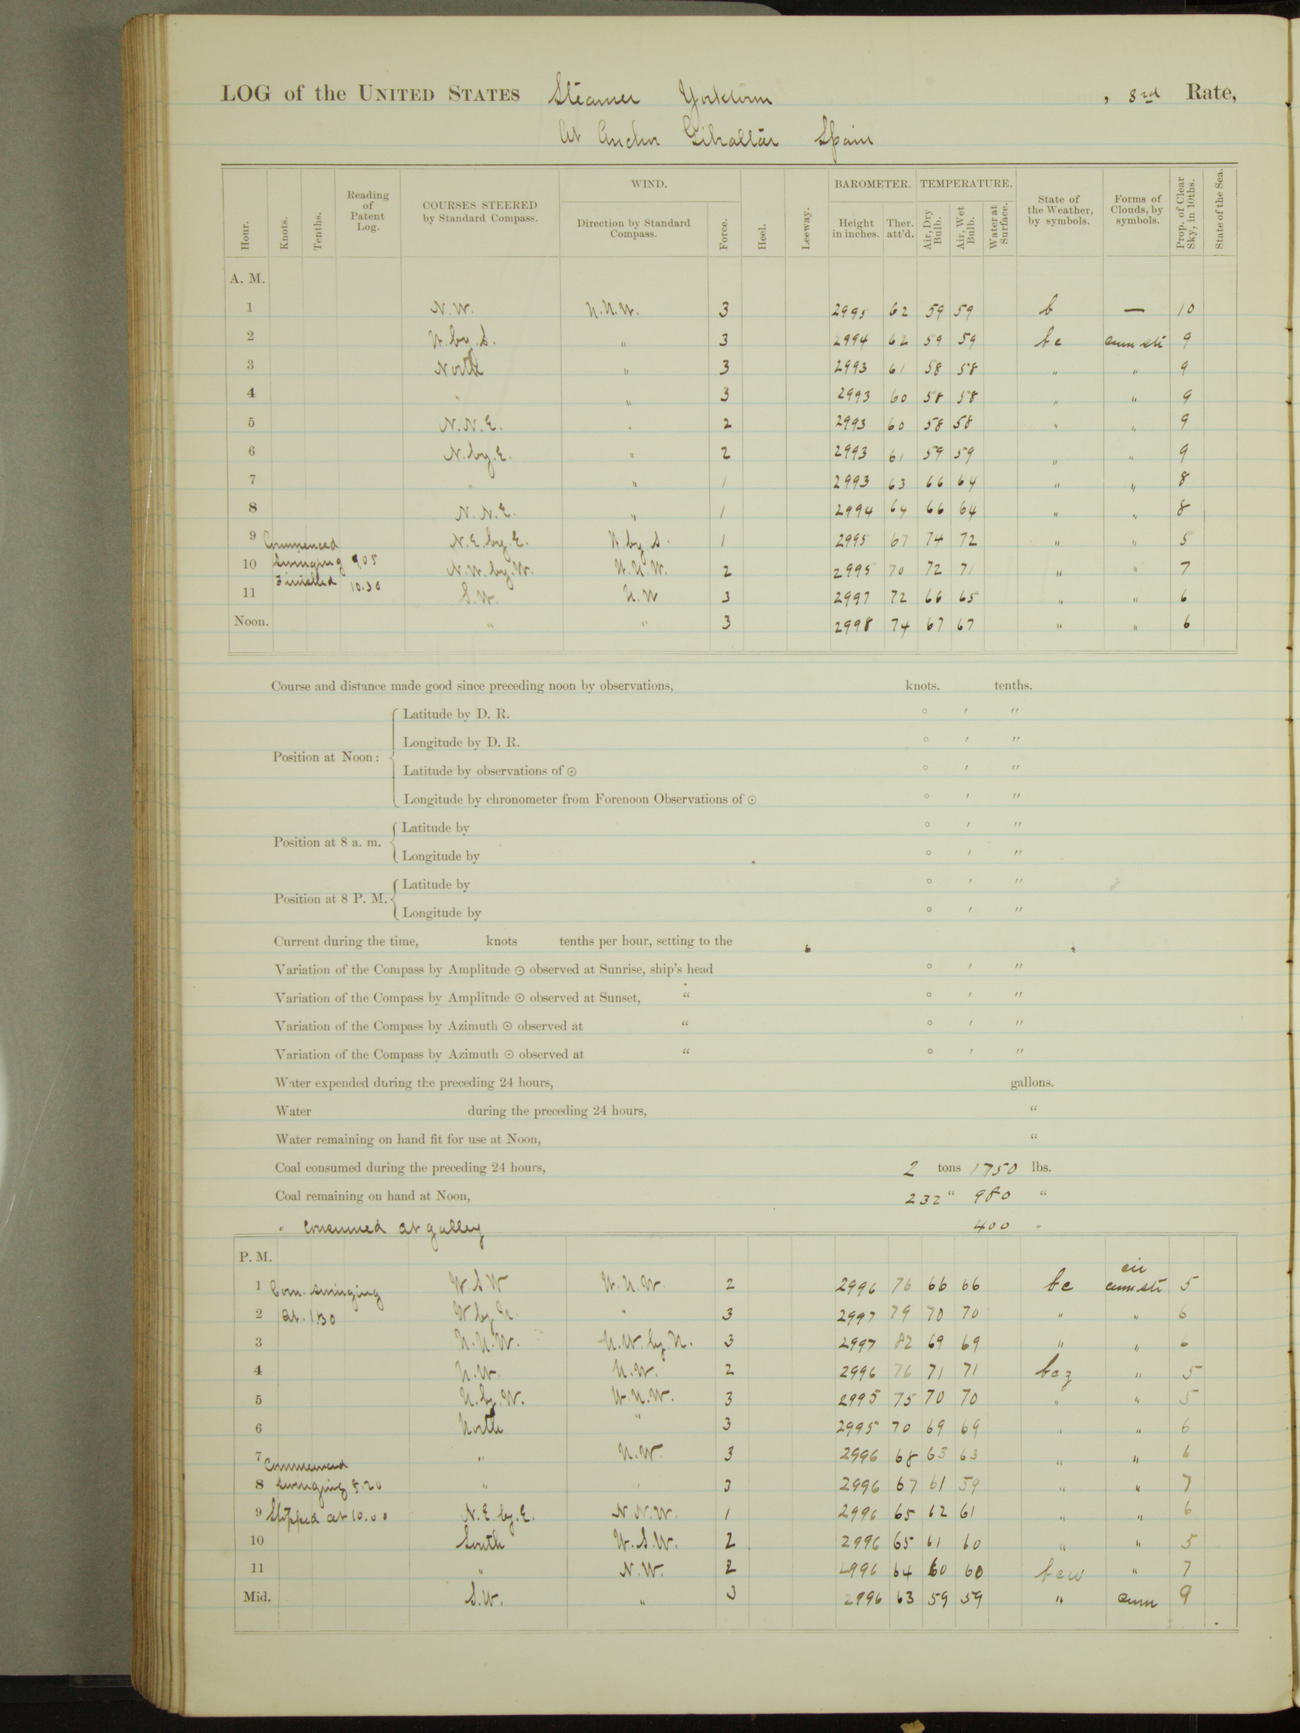 LOG of the UNITED STATES Steamer Yorktown , 3rd Rate,
At Anchor Gibraltar Spain
Hour. Knots. Tenths. Reading of Patent Log. COURSES STEERED by Standard Compass. WIND. Direction by Standard Compass. Force. Heel. Leeway. BAROMETER. Height in inches. Ther. att'd. TEMPERATURE. Air, Dry Bulb. Air, Wet Bulb. Water at Surface. State of the Weather, by symbols. Forms of Clouds, by symbols. Prop. of Clear Sky, in 10ths. State of the Sea.
A. M.
1 N.W. 3 2995 62 59 59 b — 10
2 3 2994 62 59 59 bc cum str 9
3 North " 3 2993 61 58 58 " " 9
4 " " 3 2993 60 58 58 " " 9
5 N.N.E. " 2 2993 60 58 58 " " 9
6 N.by.E. " 2 2993 61 59 59 " " 9
7 " " 1 2993 63 66 64 " " 8
8 N.N.E. " 1 2994 64 66 64 " " 8
9 Commenced N.E.by.E. 1 2995 67 74 72 " " 5
10 Swinging 9.05 N.W.by.W. 2 2995 70 72 71 " " 7
11 Finished 10.30 S.W. 3 2997 72 66 65 " " 6
Noon. " " 3 2998 74 67 67 " " 6
Course and distance made good since preceding noon by observations, knots. tenths.
Position at Noon: Latitude by D. R. ° ′ ″
Longitude by D. R. ° ′ ″
Latitude by observations of ⊙ ° ′ ″
Longitude by chronometer from Forenoon Observations of ⊙ ° ′ ″
Position at 8 a. m. Latitude by ° ′ ″
Longitude by ° ′ ″
Position at 8 P. M. Latitude by ° ′ ″
Longitude by ° ′ ″
Current during the time, knots tenths per hour, setting to the
Variation of the Compass by Amplitude ⊙ observed at Sunrise, ship's head ° ′ ″
Variation of the Compass by Amplitude ⊙ observed at Sunset, “ ° ′ ″
Variation of the Compass by Azimuth ⊙ observed at “ ° ′ ″
Variation of the Compass by Azimuth ⊙ observed at “ ° ′ ″
Water expended during the preceding 24 hours, gallons.
Water during the preceding 24 hours, “
Water remaining on hand fit for use at Noon, “
Coal consumed during the preceding 24 hours, 2 tons 1750 lbs.
Coal remaining on hand at Noon, 232 “ 980 “
" Consumed at galley 400 "
P. M.
1 Com. swinging W S W 2 2996 76 66 66 bc cir cum str 5
2 at 1.30 " 3 2997 79 70 70 " " 6
3 3 2997 82 69 69 " " 6
4 N.W. N.W. 2 2996 76 71 71 bcz " 5
5 N.by.W. 3 2995 75 70 70 " " 5
6 North " 3 2995 70 69 69 " " 6
7 Commenced " N.W. 3 2996 68 63 63 " " 6
8 Swinging 8.20 " " 3 2996 67 61 59 " " 7
9 Stopped at 10.00 N.E.by.E. N.N.W. 1 2996 65 62 61 " " 6
10 South W.S.W. 2 2996 65 61 60 " " 5
11 " N.W. 2 2996 64 60 60 bcw " 7
Mid. S.W. " 3 2996 63 59 59 " cum 9